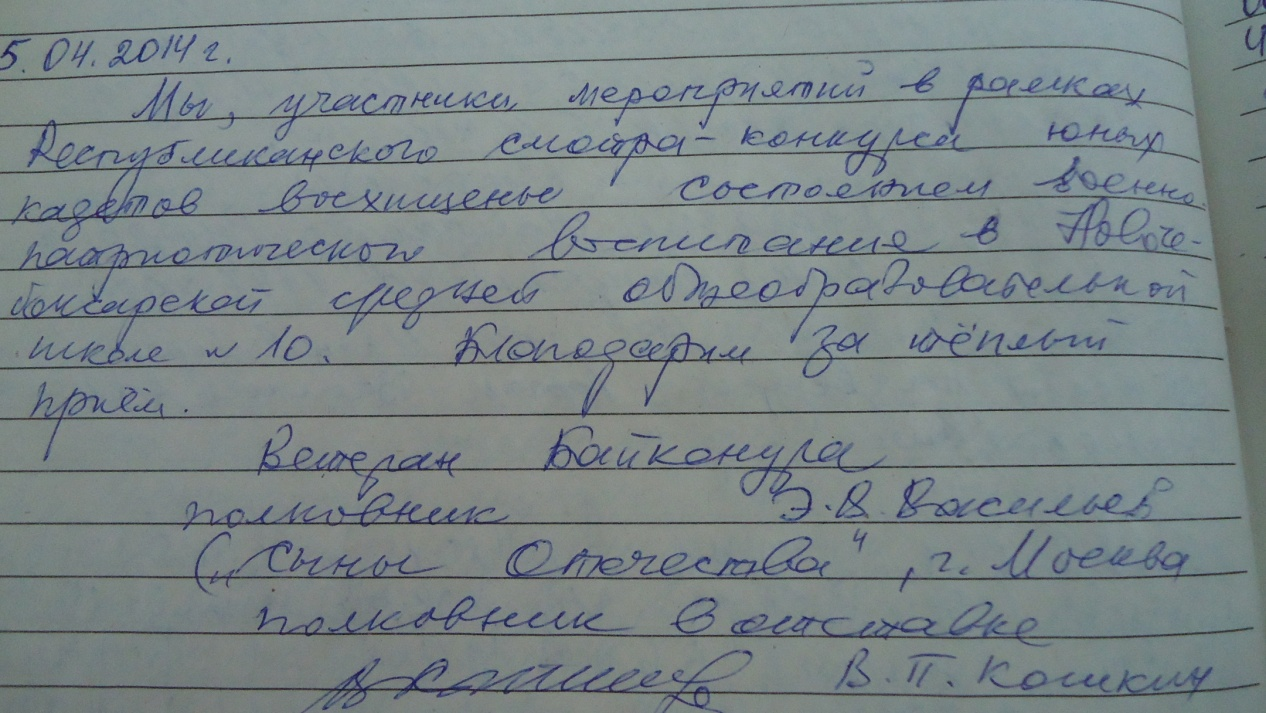 5.04.2014 г.
Мы, участники мероприятий в рамках
Республиканского смотра-конкурса юных
кадетов восхищены состоянием военно
патриотического воспитания в Новоче-
боксарской средней общеобразовательной
школе № 10. Благодарим за тёплый
приём.
Ветеран Байконура
полковник Э.В. Васильев
(„Сыны Отечества", г. Москва
полковник в отставке
В.П. Кошкин